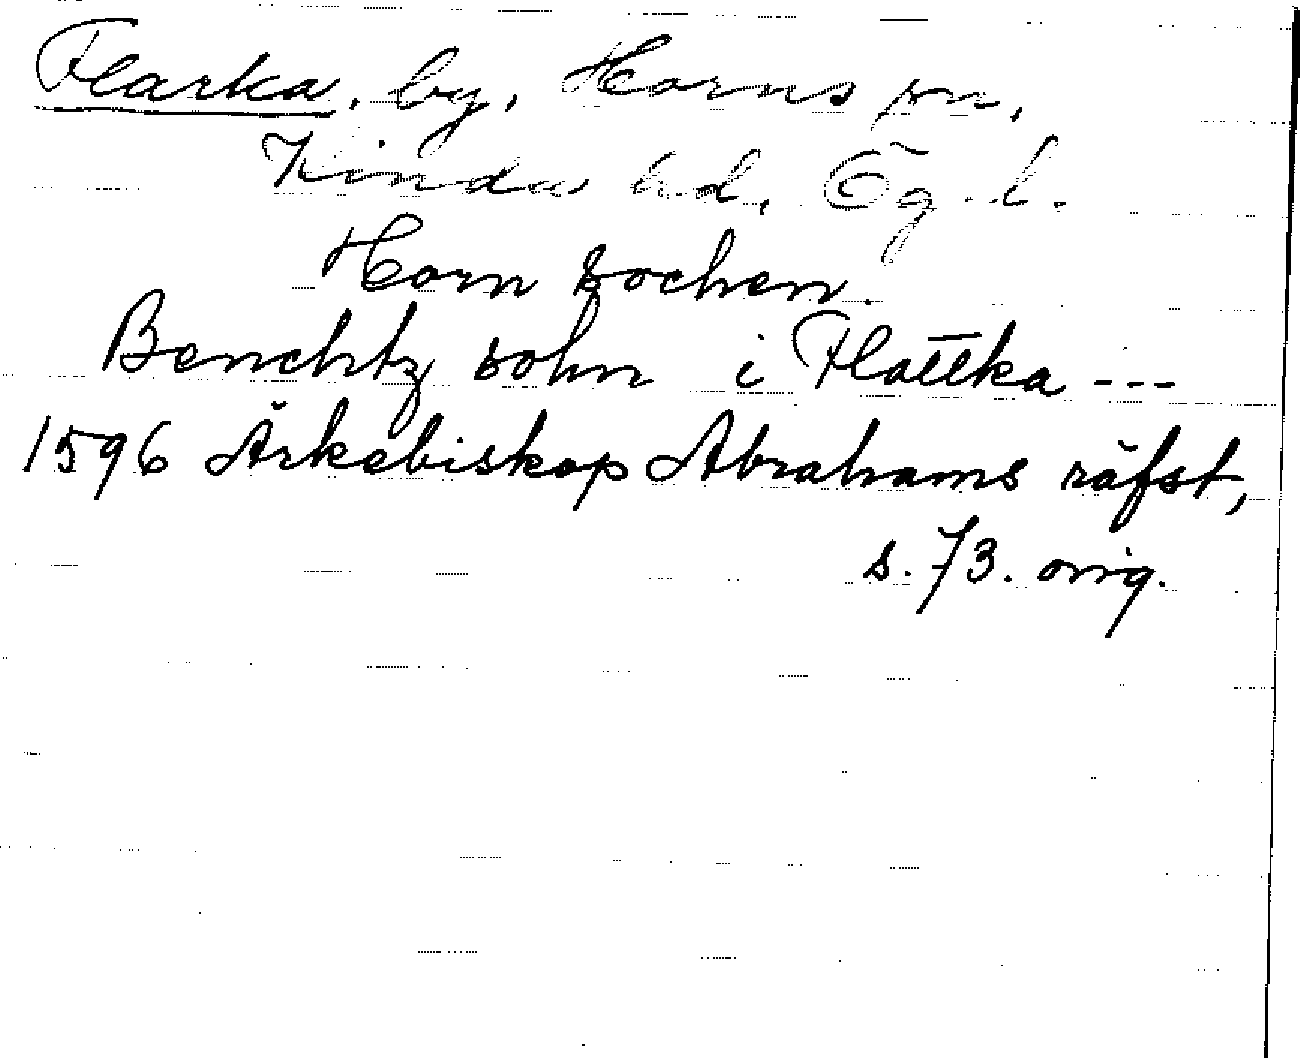 Flarka, by, Horns sn,
Kinda hd, Ög. l.
Horn sochen.
Benchtz sohn i Flattka ---
1596 Ärkebiskop Abrahams räfst,
s. 73. orig.